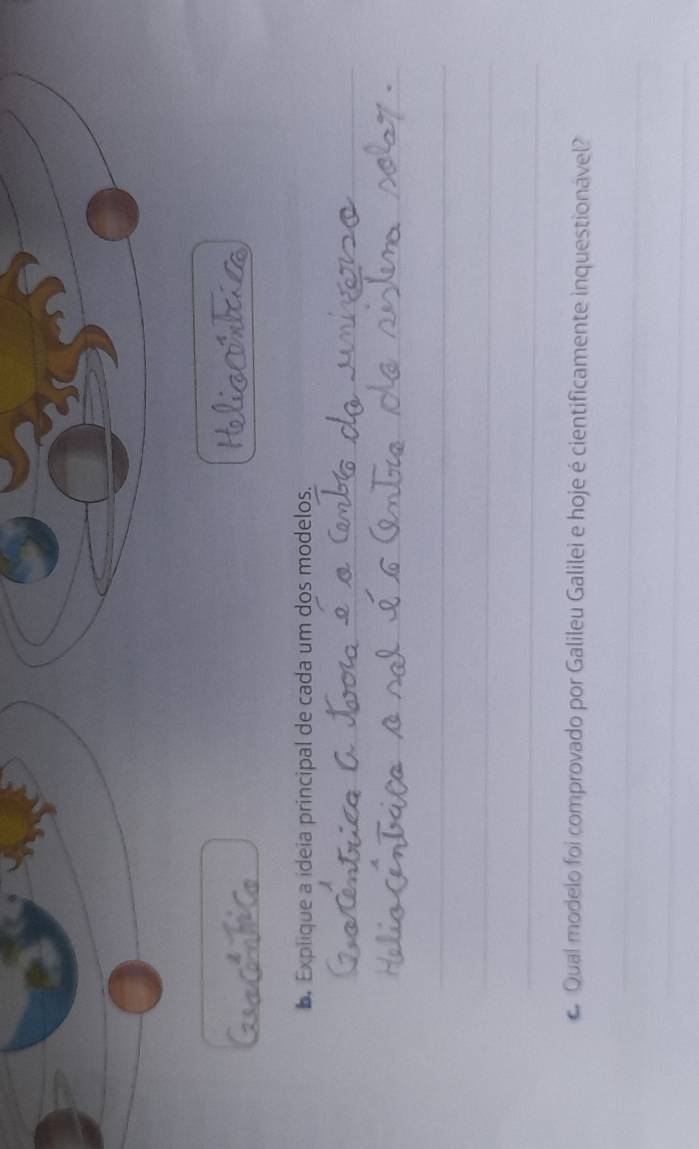 Geocêntrico
Heliocêntrico
b. Explique a ideia principal de cada um dos modelos.
Geocêntrico a terra é o centro do universo
Heliocêntrico o sol é o centro do sistema solar.
c. Qual modelo foi comprovado por Galileu Galilei e hoje é cientificamente inquestionável?